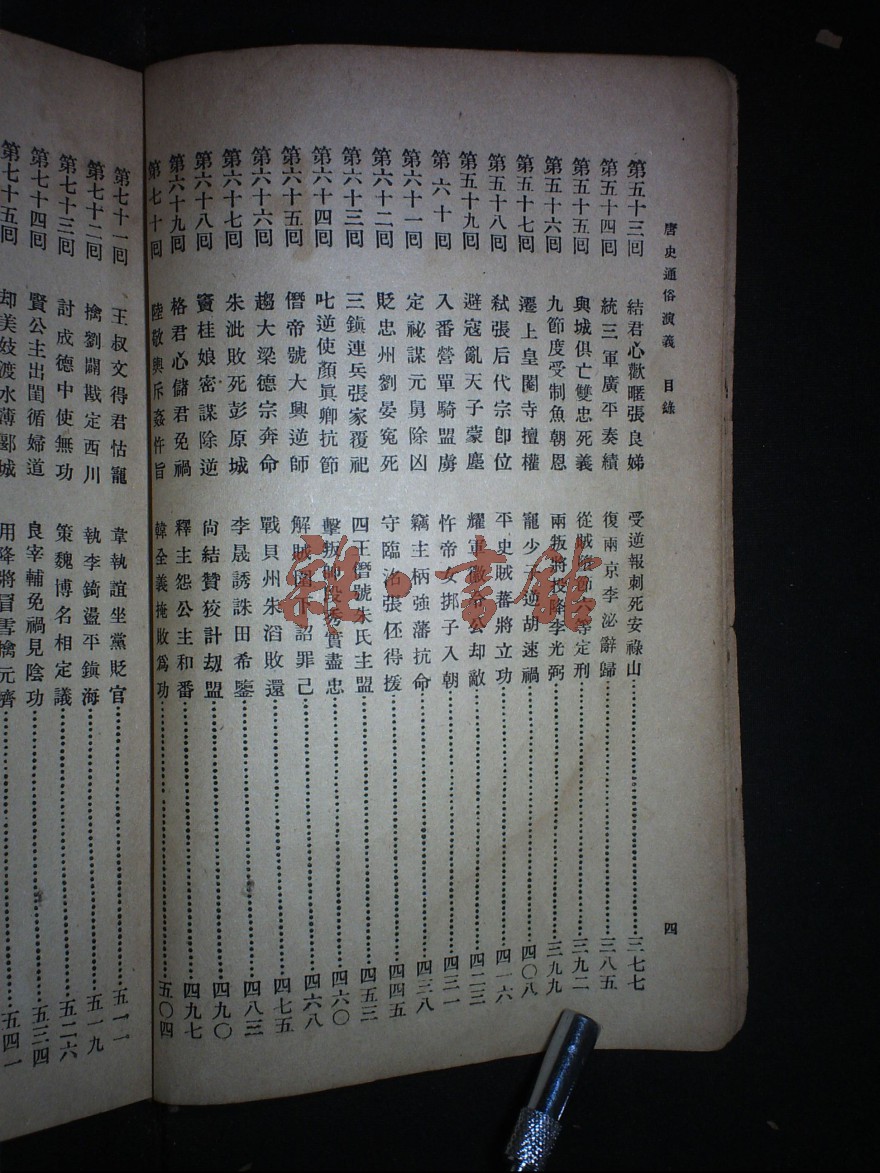 唐史通俗演義 目錄
四
第五十三回 結君心歡暱張良娣 受逆報刺死安祿山 三七七
第五十四回 統三軍廣平奏績 復兩京李泌辭歸 三八五
第五十五回 與城俱亡雙忠死義 從賊 六等定刑 三九二
第五十六回 九節度受制魚朝恩 兩叛將投降李光弼 三九九
第五十七回 遷上皇闔寺擅權 寵少子逆胡速禍 四〇八
第五十八回 弒張后代宗卽位 平史賊蕃將立功 四一六
第五十九回 避寇亂天子蒙塵 耀軍 公却敵 四二三
第六十回 入番營單騎盟虜 忤帝女挷子入朝 四三一
第六十一回 定祕謀元舅除凶 竊主柄強藩抗命 四三八
第六十二回 貶忠州劉晏冤死 守臨洺張伾得援 四四五
第六十三回 三鎭連兵張家覆祀 四王僭號朱氏主盟 四五三
第六十四回 叱逆使顏眞卿抗節 擊叛帥段秀實盡忠 四六〇
第六十五回 僭帝號大興逆師 解賊圍下詔罪己 四六八
第六十六回 趨大梁德宗奔命 戰貝州朱滔敗還 四七五
第六十七回 朱泚敗死彭原城 李晟誘誅田希鑒 四八三
第六十八回 竇桂娘密謀除逆 尙結贊狡計刼盟 四九〇
第六十九回 格君心儲君免禍 釋主怨公主和番 四九七
第七十回 陸敬輿斥姦忤旨 韓全義掩敗爲功 五〇四
第七十一回 王叔文得君怙寵 韋執誼坐黨貶官 五一一
第七十二回 擒劉闢戡定西川 執李錡盪平鎭海 五一九
第七十三回 討成德中使無功 策魏博名相定議 五二六
第七十四回 賢公主出閨循婦道 良宰輔免禍見陰功 五三四
第七十五回 却美妓渡水薄郾城 用降將冒雪擒元濟 五四一
雜·書館